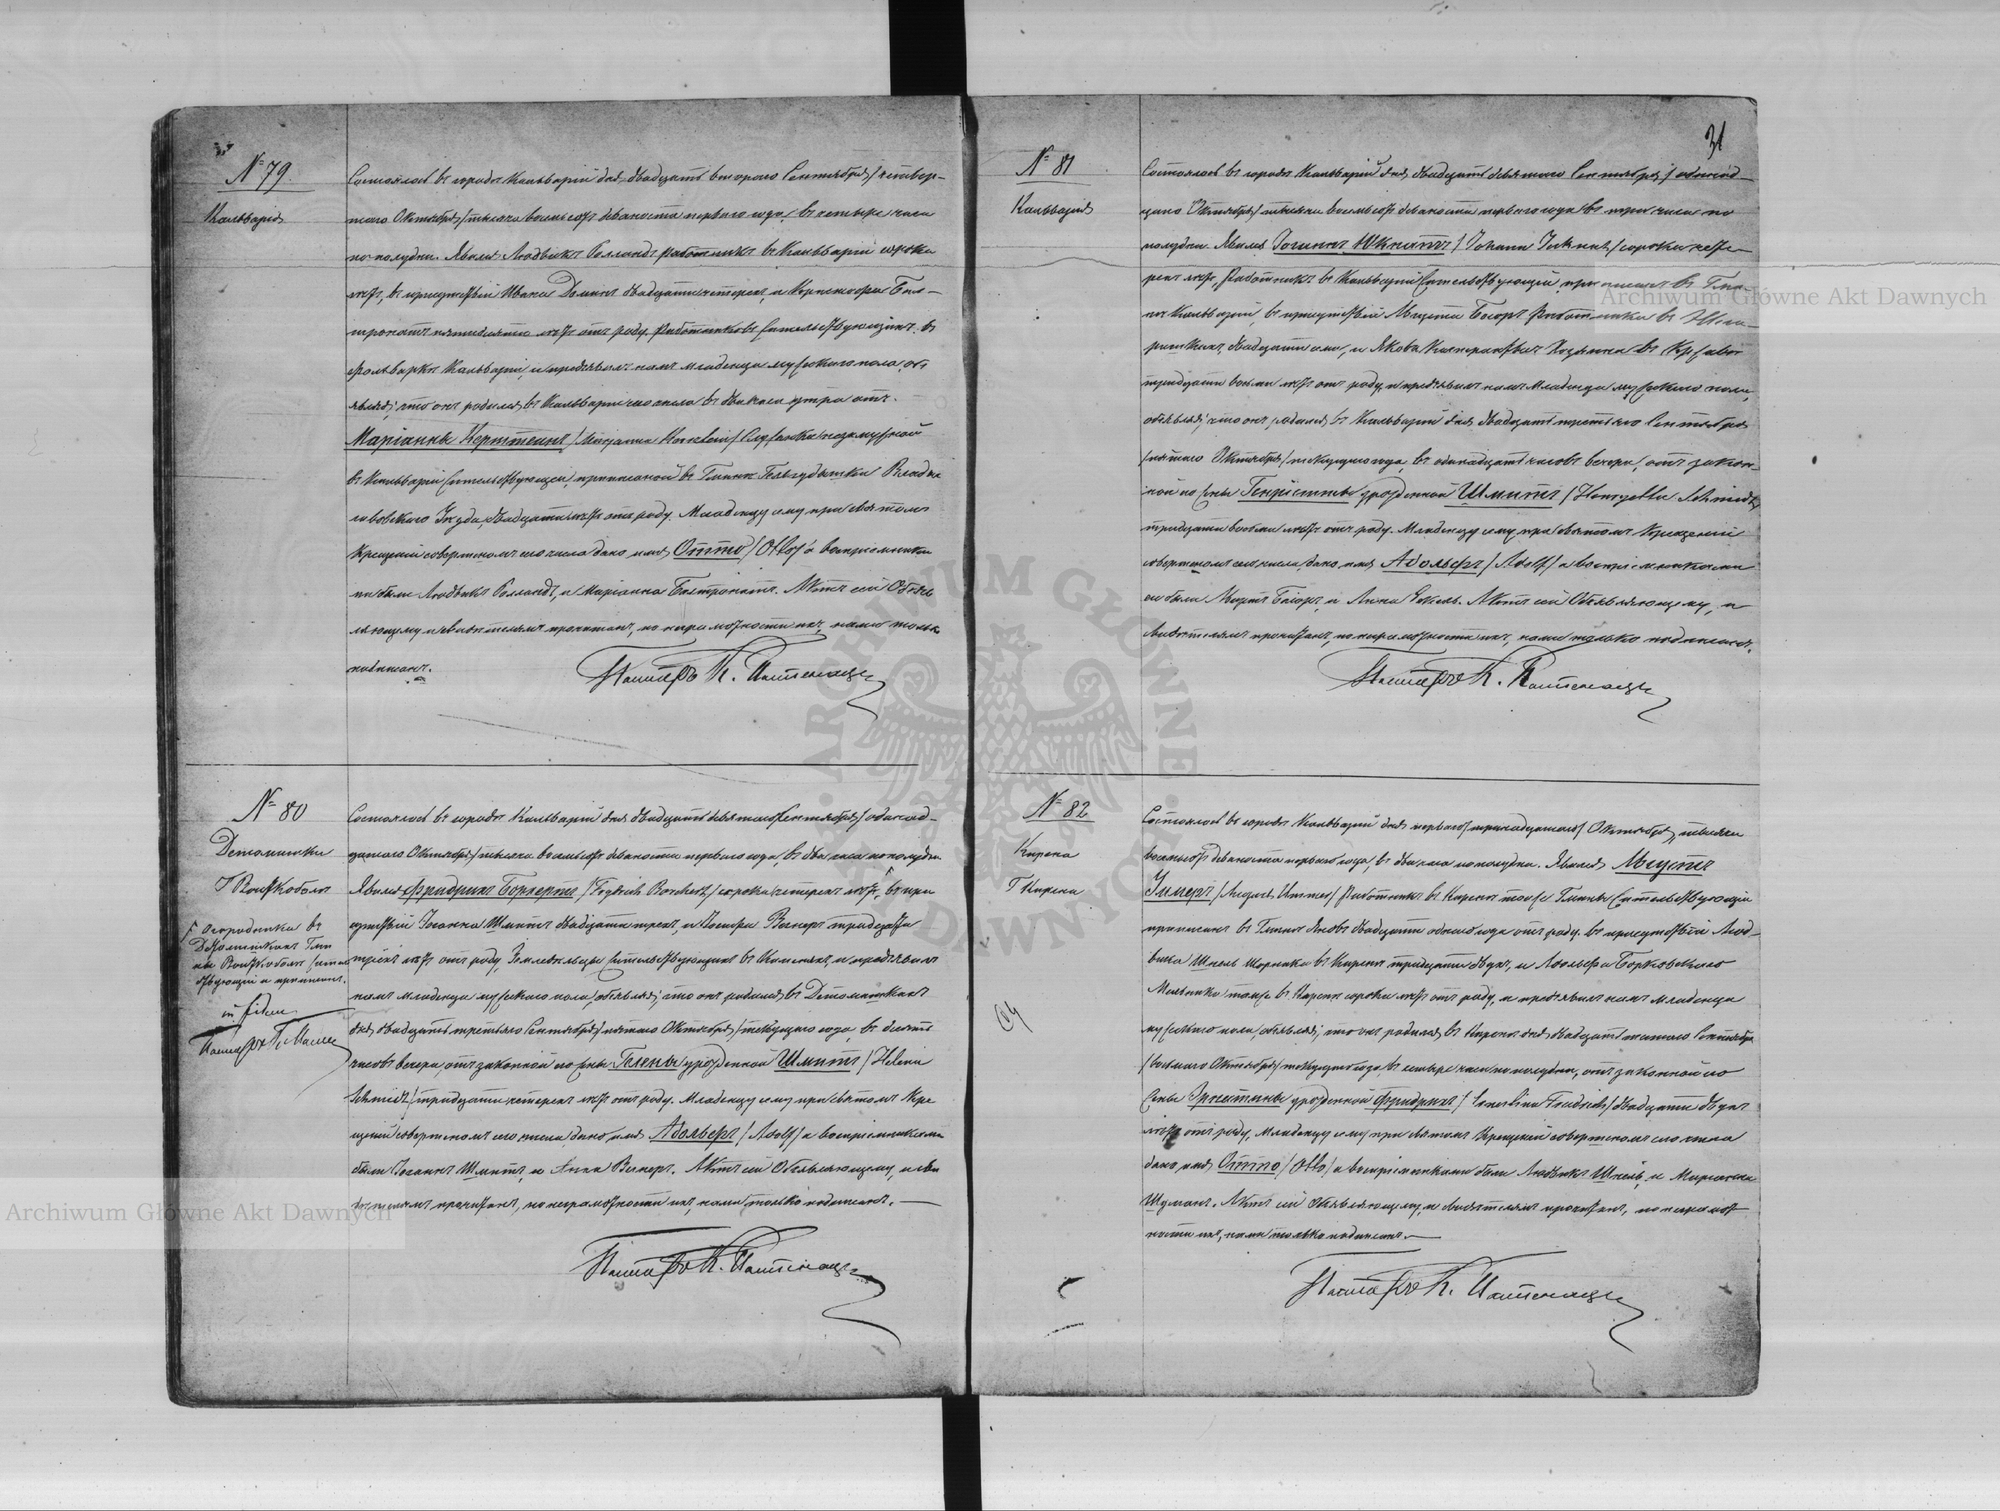 № 79.
Кальварія
Состоялось въ городѣ Кальваріи дня двадцать втораго Сентября / четвер-
таго Октября / тысяча восемьсотъ девяноста перваго года, въ четыре часа
по полудни. Явился Людвикъ Ролландъ работникъ въ Кальваріи сорока
лѣтъ, въ присутствіи Ивана Доманъ двадцати четырехъ, и
пятидесяти лѣтъ отъ роду, работниковъ жительствующихъ въ
фольваркѣ Кальваріи, и предъявилъ намъ младенца мужескаго пола, объ-
являя; что онъ родился въ Кальваріи числа въ два часа утра отъ
Маріанны Керштеинъ / Maryanna / Служанки незамужной
въ Кальваріи жительствующей, приписаной въ Гминѣ Гельгудышки Владис-
лавовскаго Уѣзда, двадцати лѣтъ отъ роду. Младенцу сему при святомъ
Крещеніи совершеномъ сего числа дано имя Отто / Otto / а воспріемника-
ми были Людвикъ Ролландъ, и Маріанна Бальтронатъ. Актъ сей Объяв-
ляющему и свидѣтелямъ прочитанъ, по неграмотности ихъ, нами только
подписанъ.
Пасторъ К.
№ 80
Гминаобовъ
огородника въ
in fidem
Пасторъ К.
Состоялось въ городѣ Кальваріи дня двадцать девятаго Сентября / одинад-
цатаго Октября / тысяча восемьсотъ девяноста перваго года, въ два часа по полудни.
Явился Фридрихъ Борхертъ / Frydrich Borchert / сорока четырехъ лѣтъ, въ при
сутствіи Іоганна Шмитъ двадцати трехъ, и Іосифа Венеръ тридцати
трехъ лѣтъ отъ роду, Земледѣльцы жительствующихъ въ и предъявилъ
намъ младенца мужескаго пола, объявляя; что онъ родился въ Детомишкахъ
дня двадцать третьяго Сентября / пятаго Октября / текущаго года, въ девять
часовъ вечера, отъ законной его жены Гелены урожденной Шмитъ / Helena
Schmidt / тридцати четырехъ лѣтъ отъ роду. Младенцу сему при святомъ Кре
щеніи совершеномъ сего числа, дано имя Адольфъ / Adolf / а воспріемниками
были Іоганъ Шмитъ, и Анна Венеръ. Актъ сей Объявляющему, и сви
дѣтелямъ прочитанъ, по неграмотности ихъ, нами только подписанъ.
Пасторъ К.
31
№ 81
Кальварія
Состоялось въ городѣ Кальваріи дня двадцать девятаго Сентября / одинад-
цаго Октября / тысяча восемьсотъ девяноста перваго года въ три часа по
полудни. Явился Іоганнъ Шкнатъ / Johann / сорока четы-
рехъ лѣтъ, Работникъ въ Кальваріи жительствующій, приписанъ въ Гми-
нѣ Кальваріи, въ присутствіи Августа Баіоръ Работника въ
двадцати семи, и Якова Хозяина въ
тридцати восьми лѣтъ отъ роду, и предъявилъ намъ Младенца мужескаго пола,
объявляя; что онъ родился въ Кальваріи дня двадцать третьяго Сентября
/ пятаго Октября / текущаго года, въ одинадцать часовъ вечера, отъ закон-
ной его жены Генріетты урожденной Шмитъ / Henryetta Schmidt /
тридцати восьми лѣтъ отъ роду. Младенцу сему при святомъ Крещеніи
совершеномъ сего числа, дано имя Адольфъ / Adolf / а воспріемниками
его были Баіоръ и Анна Актъ сей Объявляющему, и
свидѣтелямъ прочитанъ, по неграмотности ихъ, нами только подписанъ.
Пасторъ К.
№ 82
Кирсна
Г Кирсна
Состоялось въ городѣ Кальваріи дня перваго / тринадцатаго / Октября тысяча
восемьсотъ девяноста перваго года, въ два часа по полудни. Явился Августъ
Унмеръ / August Unmer / Работникъ въ Кирснѣ тоже Гмины жительствующій
приписанъ въ Гминѣ двадцати одного года отъ роду. въ присутствіи Люд-
вика Шнель въ Кирснѣ тридцати двухъ, и Адольфа Борковскаго
Мельника тоже въ Кирснѣ сорока лѣтъ отъ роду, и предъявилъ намъ Младенца
мужескаго пола, объявляя; что онъ родился въ Кирснѣ дня двадцать шестаго Сентября
/ восьмаго Октября / текущаго года въ четыре часа по полудни, отъ законной его
жены Эрнестины урожденной Фридрихъ / Ernestina Friedrich / двадцати двухъ
лѣтъ отъ роду, Младенцу сему при святомъ Крещеніи совершеномъ сего числа
дано имя Отто / Otto / а воспріемниками были Людвикъ Шнель, и Маріанна
Шуманъ. Актъ сей Объявляющему, и свидѣтелямъ прочитанъ, по неграмот
ности ихъ, нами только подписанъ.
Пасторъ К.
Archiwum Główne Akt Dawnych
Archiwum Główne Akt Dawnych
ARCHIWUM GŁÓWNE AKT DAWNYCH